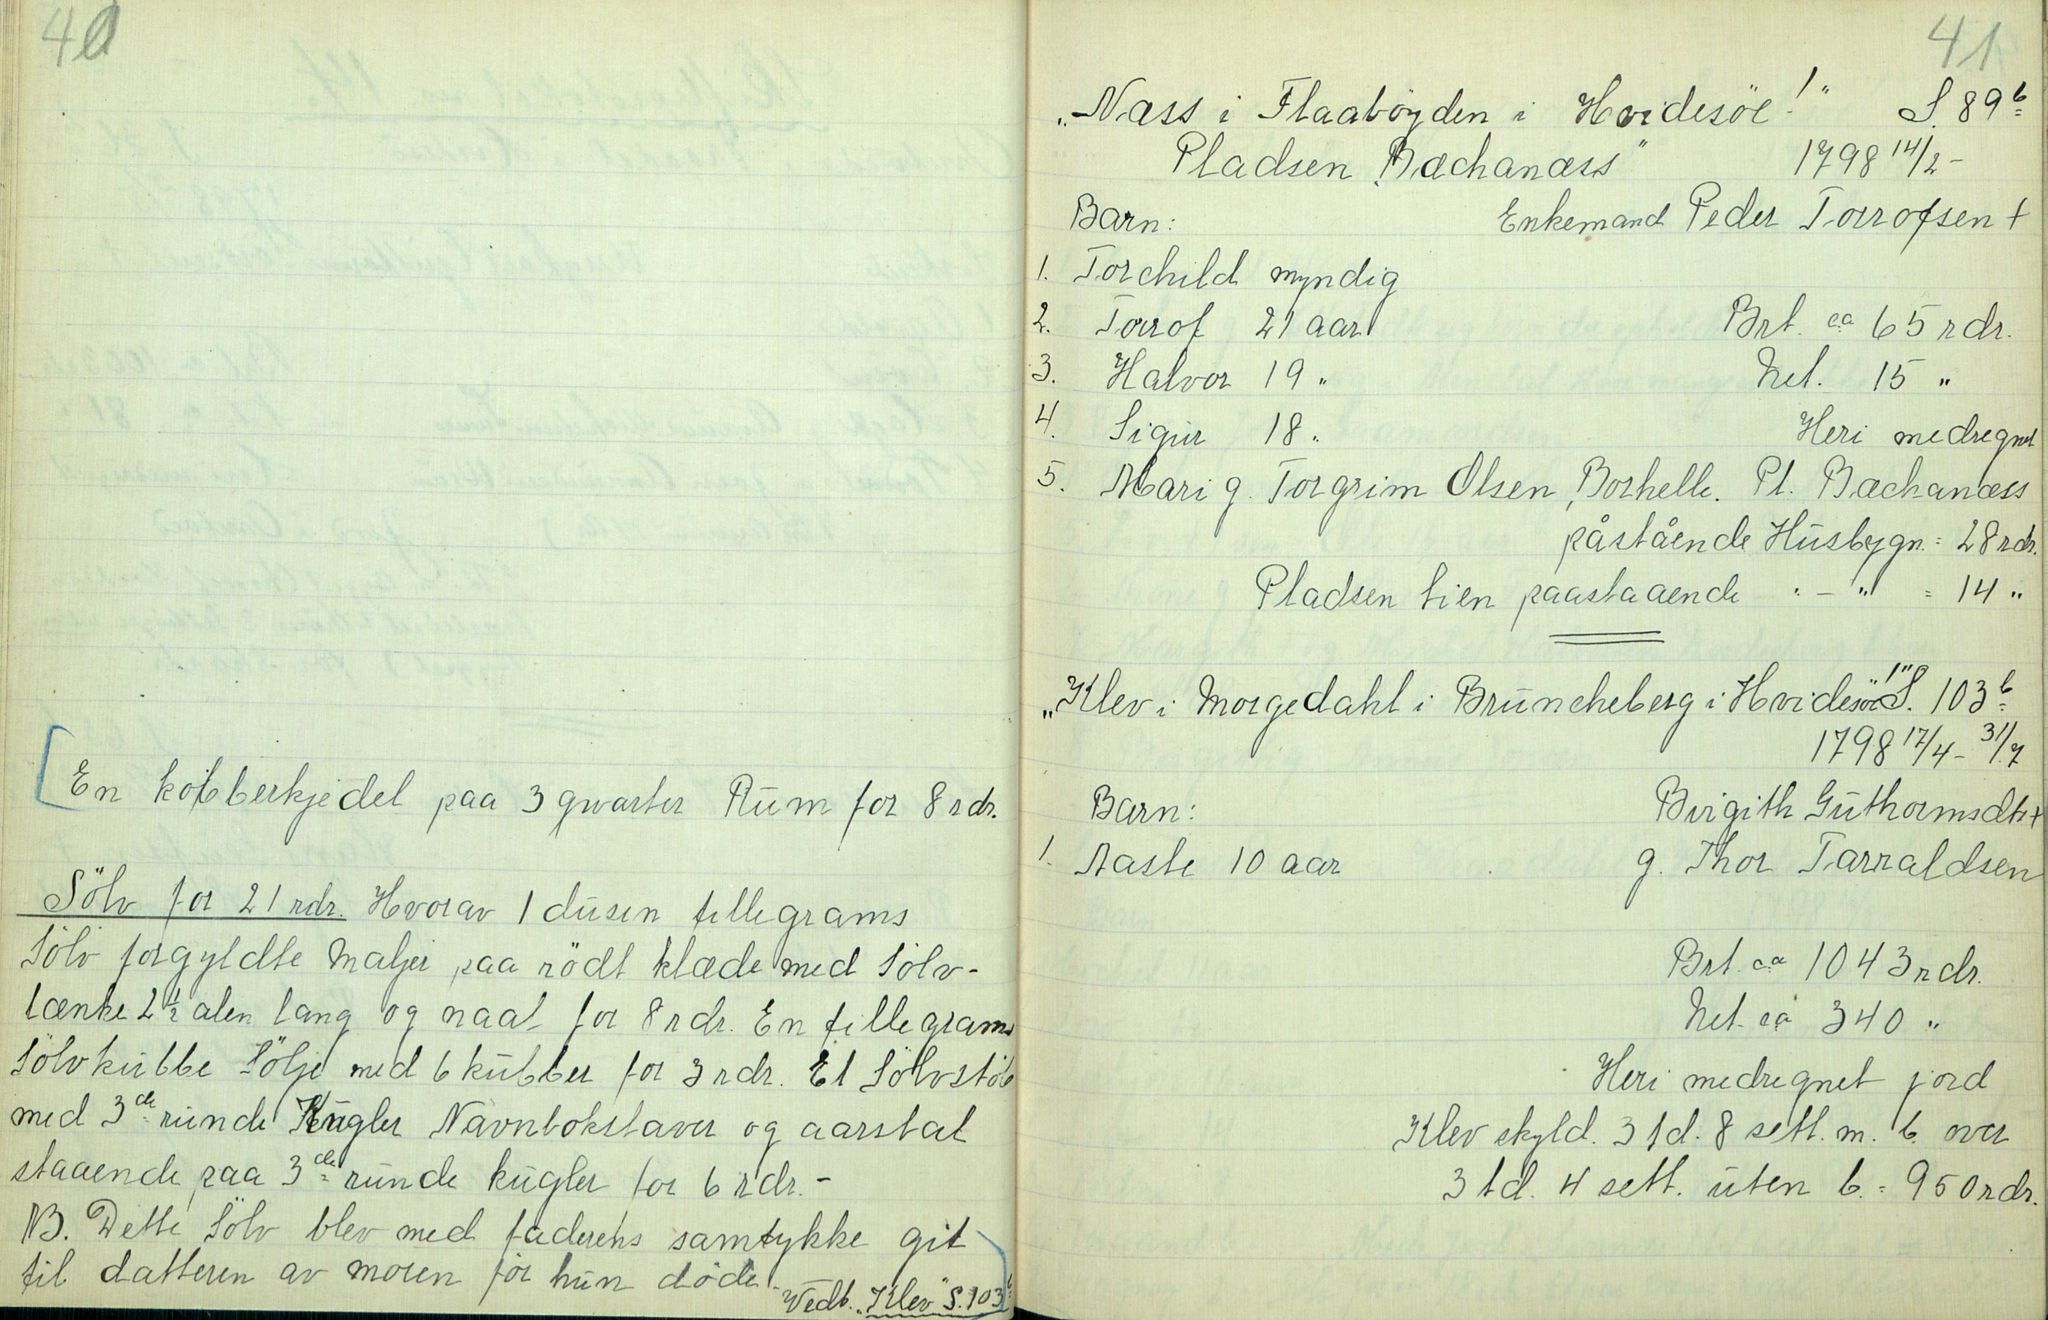 40
En kobberkjedel paa 3 qvarter Rum for 8 rdr.
Sölv for 21 rdr. Hvorav 1 dusin fillegrams
Sölv forgyldte Maljer paa rödt klæde med Sölv-
lænke 2½ alen lang og naal for 8 rdr. En fillegrams
Sölvkubbe Sölje med 6 kubber for 3 rdr. Et Sölvstöb
med 3de runde Kugler Navnbokstaver og aarstal
staaende paa 3de runde kugler for 6 rdr. -
NB. Dette Sölv blev med faderens samtykke git
til datteren av moren för hun döde.
Vedk. "Klev" S. 103b
41
"Næss i Flaaböyden i Hvidesöe!" S. 89b
Pladsen "Bæchanæss" 1798 14/2 -
Barn: Enkemand Peder Torrofsen +
1. Torchild myndig
2. Torrof 21 aar Brt. ca 65 rdr.
3. Halvor 19 " Net. 15 "
4. Sigur 18 " Heri medregnet
5. Mari g. Torgrim Olsen Borhelle. Pl. Bæchanæss
påstående Husbygn. = 28 rdr.
Pladsen Lien paastaaende " - " = 14 "
"Klev i Morgedahl i Bruncheberg i Hvidesöe!" S. 103b
1798 17/4 - 31/7
Barn: Birgith Guthormsdtr +
1. Aaste 10 aar g. Thor Tarraldsen
Brt. ca 1043 rdr.
Net. ca 340 "
Heri medregnet jord
Klev skyld. 3 td. 8 sett. m. b. over
3 td. 4 sett. uten b. = 950 rdr.